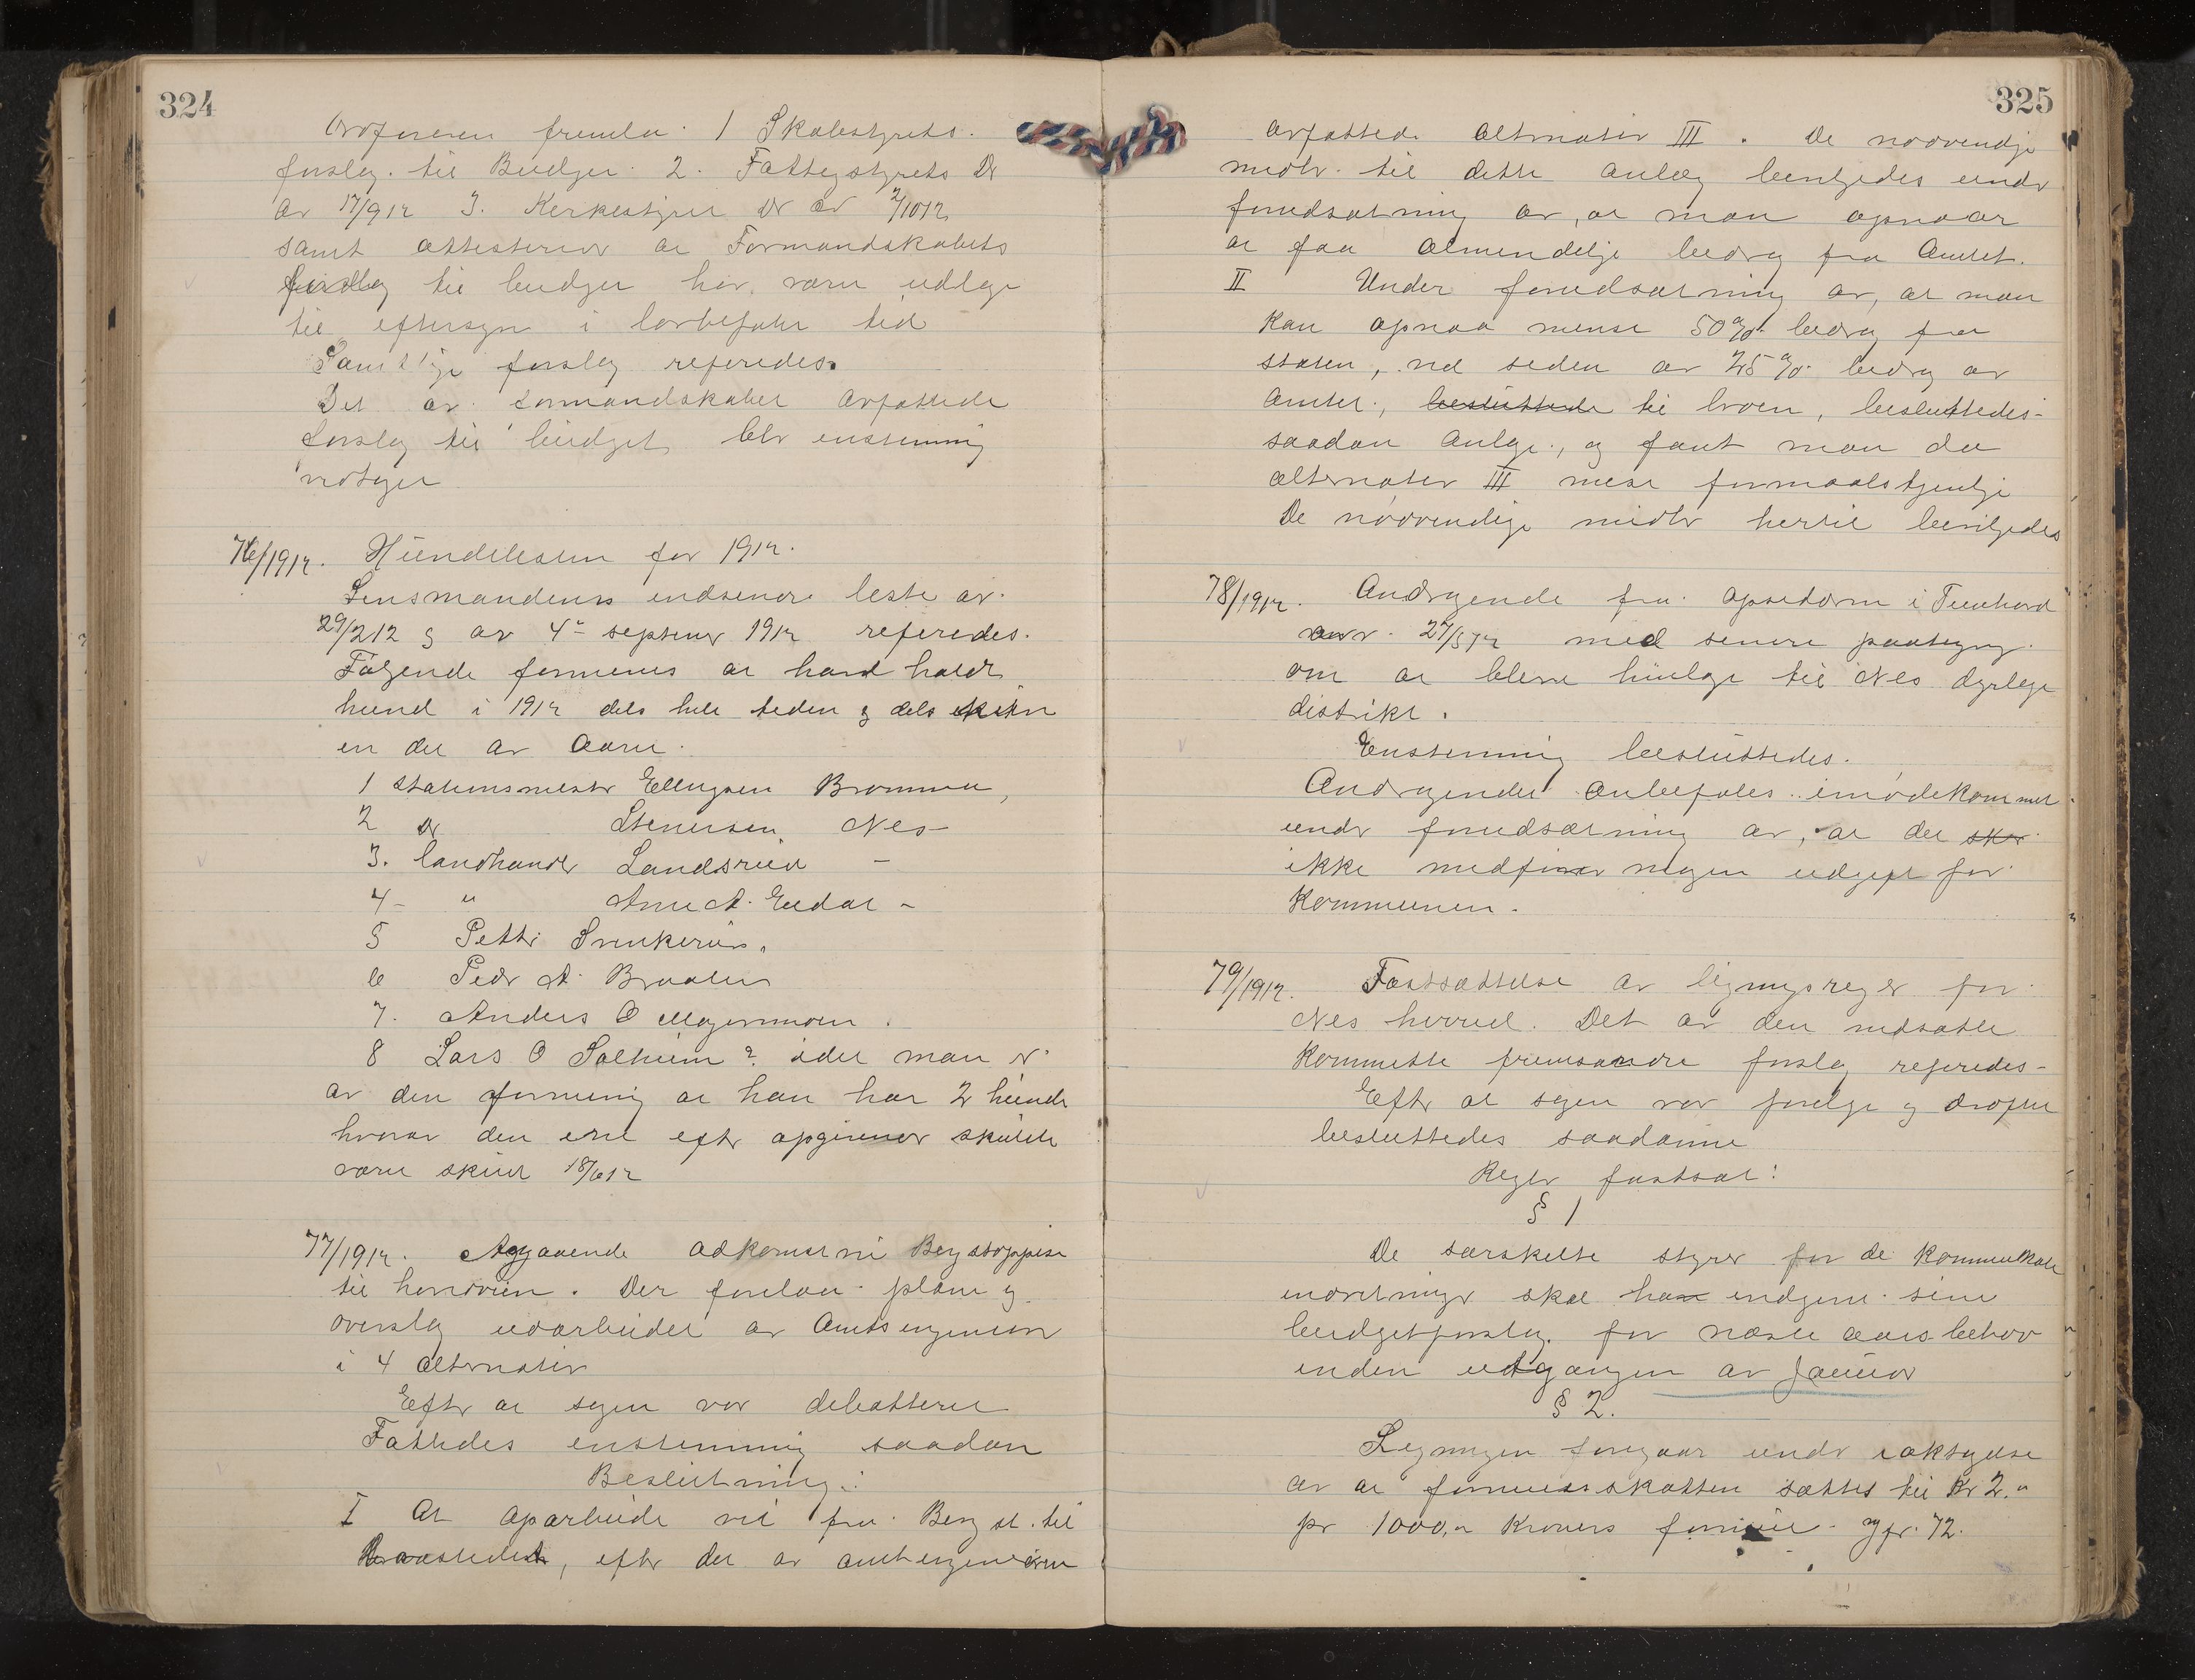 324
Ordføreren fremla 1 Skolestyrets
forslag til Budget 2. Fattigstyrets Do
av 17/9 12 3. Kerkestyret Do av 2/10 12
samt attesterer at Formandskabets
forslag til budget har været udlagt
til eftersyn i lovbefalet tid
Samtlige forslag referedes.
Det av formandskabet avfattede
forslag til budget blev enstemmig
vedtaget
76/1912. Hundelisten for 1912.
Lensmandens indsendte liste av
29/2 12 og av 4de september 1912 referedes.
Følgende formenes at have holdt
hund i 1912 dels hele tiden og dels
en del av Aaret.
1 Stationsmester Ellingsen Bromma,
2 Do Stenersen Nes
3. landhandler Landsrud —
4 - " Arne A. Eidal -
5 Petter Svenkerud.
6 Peder A. Braaten
7. Anders O Mogenmoen.
8 Lars O Solheim? idet man er
av den formening at han har 2 hunde
hvorav den ene efter opgivende skulde
være skudt 18/6 12
77/1912. Angaaende adkomst ved Berg stoppest
til hovedveien. Der forelaa plane og
overslag udarbeidet av Amtsingeniøren
i 4 alternativ
Efter at sagen var debatteret
Fattedes enstemmig saadan
Beslutning:
I At oparbeide vei fra Berg st. til
, efter det av amtsingeniøren
325
avfattede Altrnativ III. De nødvendige
midler til dette anlæg bevilgedes under
forudsætning av, at man opnaar
at faa almindelige bidrag fra Amtet.
II Under forudsætning av, at man
kan opnaa mindst 50% bidrag fra
staten, ved siden av 25% bidrag av
Amtet, besluttede til broen, besluttedes
saadan Anlagt, og fant man da
alternativ III mest formaalstjenlig
De nødvendige midler hertil bevilgedes
78/1912. Andragende fra opsidderne i Tunhovd
av 27/5 12 med senere paategning
om at bleve henlagt til Nes dyrlege
distrikt.
Enstemmig besluttedes.
Andragendet anbefales imødekommet
under forudsætning av, at det sker
ikke medfører nogen udgift for
Kommunen.
79/1912. Fastsættelse av ligningsregler for
Nes herred. Det av den nedsatte
Kommitte fremsatte forslag referedes
Efter at sagen var forelagt og drøftet
besluttedes saadanne
Regler fastsat:
§ 1
De særskilte styrer for de kommunale
indretninger skal have indgivet sine
budgetforslag for næste aars behov
inden utgangen av Januar
§ 2.
Ligningen foregaar under iaktagelse
av at formuesskatten sættes til Kr 2."
pr 1000," Kroners formue jfr. 72.